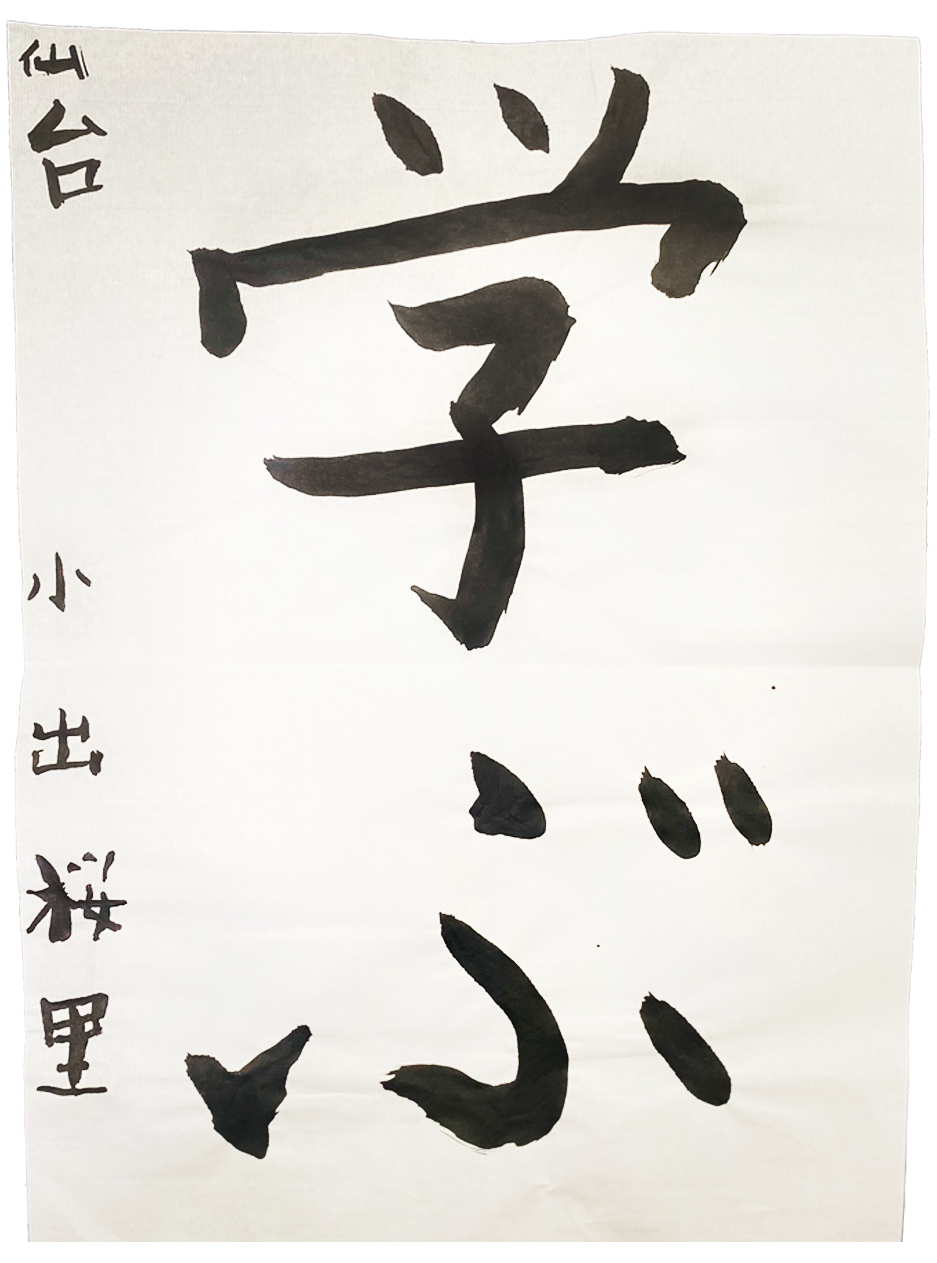 学ぶ
仙台 小出桜里